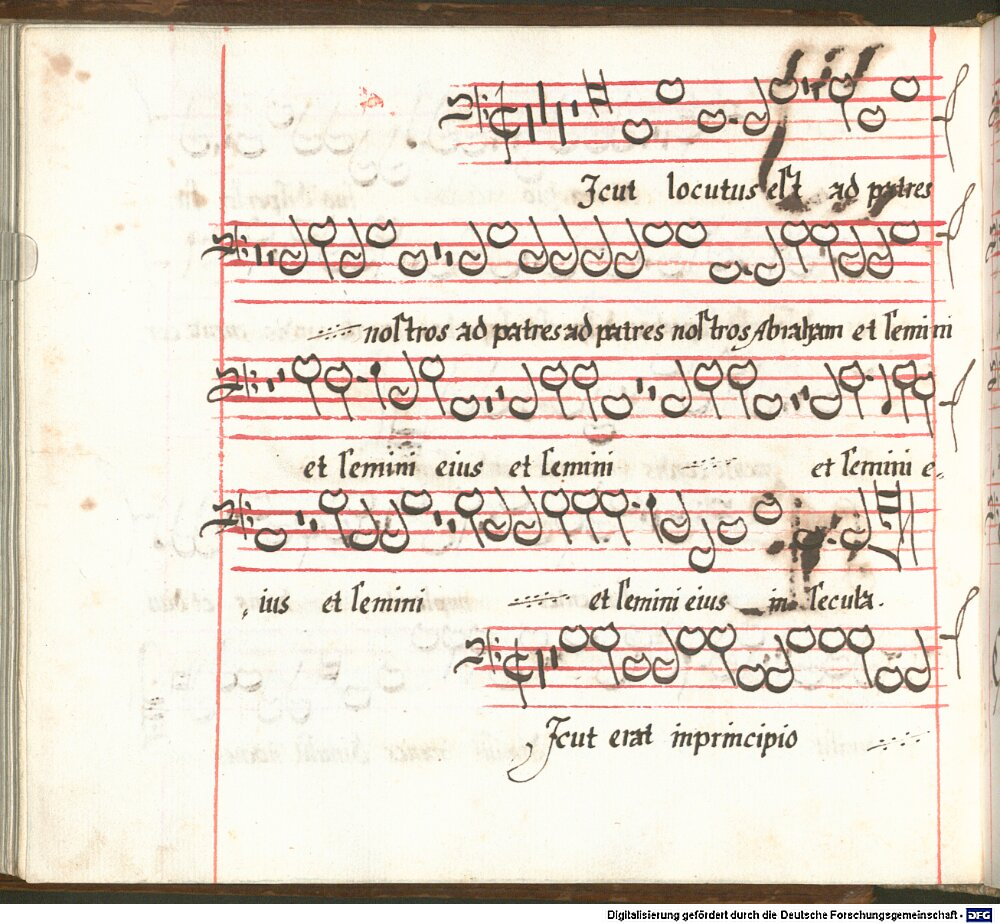 Jcut locutus est ad patres
nostros ad patres ad patres nostros Abraham et semini
et semini eius et semini et semini e-
ius et semini et semini eius in secula.
Jcut erat inprincipio
Digitalisierung gefördert durch die Deutsche Forschungsgemeinschaft - DFG